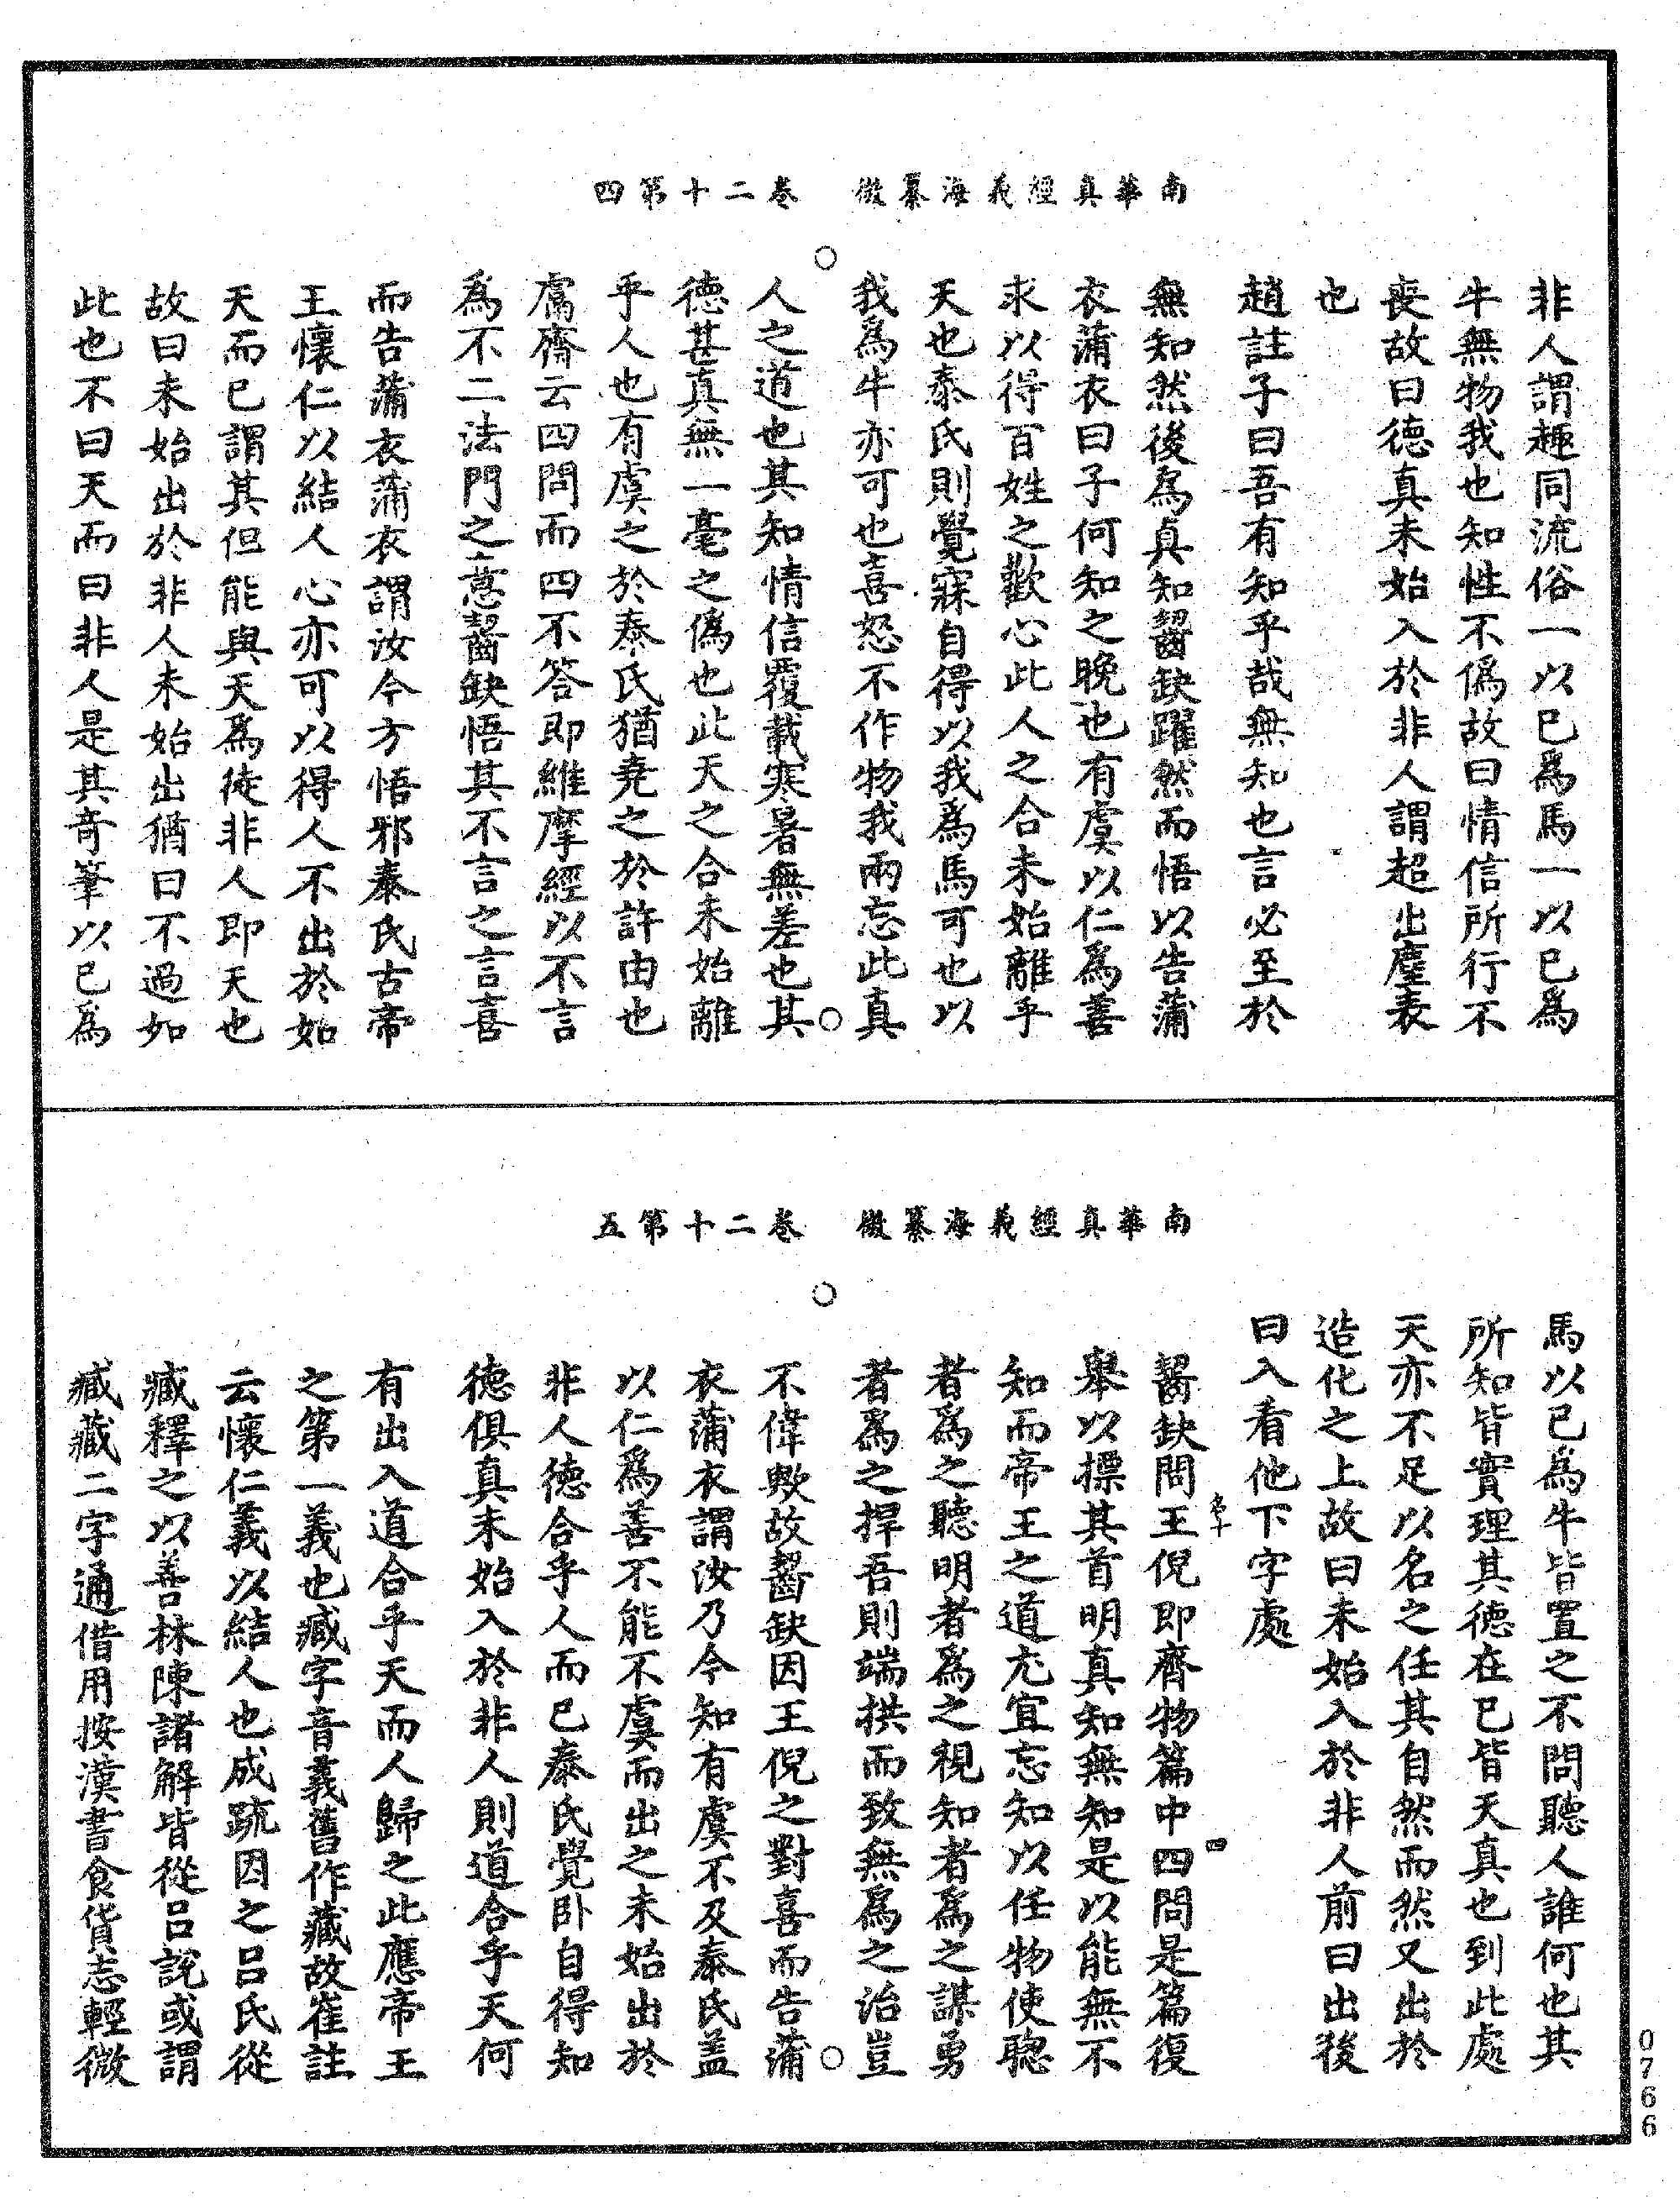 南華真經義海纂微　卷二十第四
非人謂趣同流俗一以已爲馬一以已爲
牛無物我也知性不僞故曰情信所行不
喪故曰德真未始入於非人謂超出塵表
也
趙註子曰吾有知乎哉無知也言必至於
無知然後爲真知齧缺躍然而悟以告蒲
衣蒲衣曰子何知之晚也有虞以仁爲善
求以得百姓之歡心此人之合未始離乎
天也泰氏則覺寐自得以我爲馬可也以
我爲牛亦可也喜怒不作物我兩忘此真
人之道也其知情信覆載寒暑無差也其
德甚真無一毫之僞也此天之合未始離
乎人也有虞之於泰氏猶堯之於許由也
鬳齋云四問而四不答即維摩經以不言
爲不二法門之意齧缺悟其不言之言喜
而告蒲衣蒲衣謂汝今方悟邪泰氏古帝
王懷仁以結人心亦可以得人不出於如
天而已謂其但能與天爲徒非人即天也
故曰未始出於非人未始出猶曰不過如
此也不曰天而曰非人是其奇筆以已爲
南華真經義海纂微　卷二十第五
馬以已爲牛皆置之不問聽人誰何也其
所知皆實理其德在已皆天真也到此處
天亦不足以名之任其自然而然又出於
造化之上故曰未始入於非人前曰出後
曰入看他下字處
齧缺問王倪即齊物篇中四問是篇復
舉以摽其首明真知無知是以能無不
知而帝王之道尤宜忘知以任物使聰
者爲之聽明者爲之視知者爲之謀勇
者爲之捍吾則端拱而致無爲之治豈
不偉歟故齧缺因王倪之對喜而告蒲
衣蒲衣謂汝乃今知有虞不及泰氏盖
以仁爲善不能不虞而出之未始出於
非人德合乎人而已泰氏覺卧自得知
德俱真未始入於非人則道合乎天何
有出入道合乎天而人歸之此應帝王
之第一義也臧字音義舊作藏故崔註
云懷仁義以結人也成疏因之吕氏從
臧釋之以善林陳諸解皆從吕說或謂
臧藏二字通借用按漢書食貨志輕微
0766